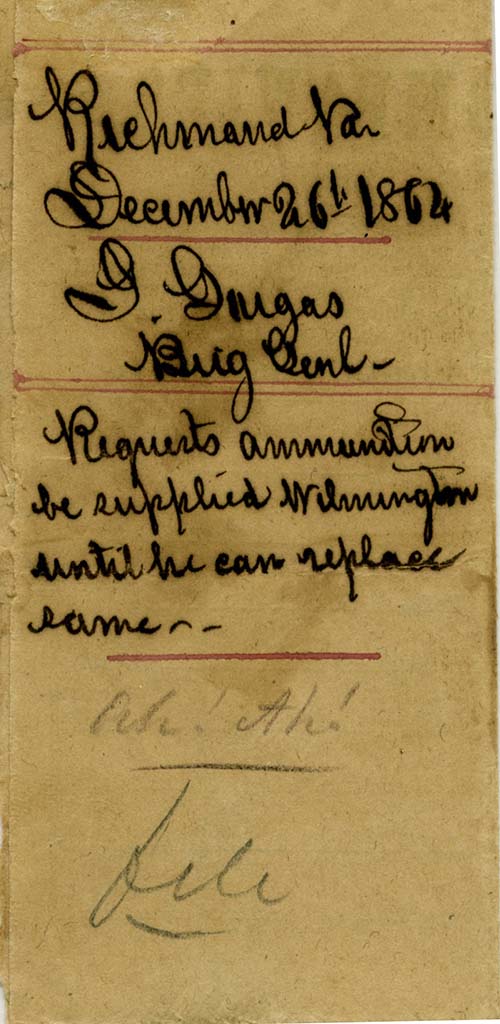 Richmond Va.
December 26th 1864
J. Gorgas
Brig Genl -
Requests ammunition
be supplied Wilmington
until he can replace
same - -
File